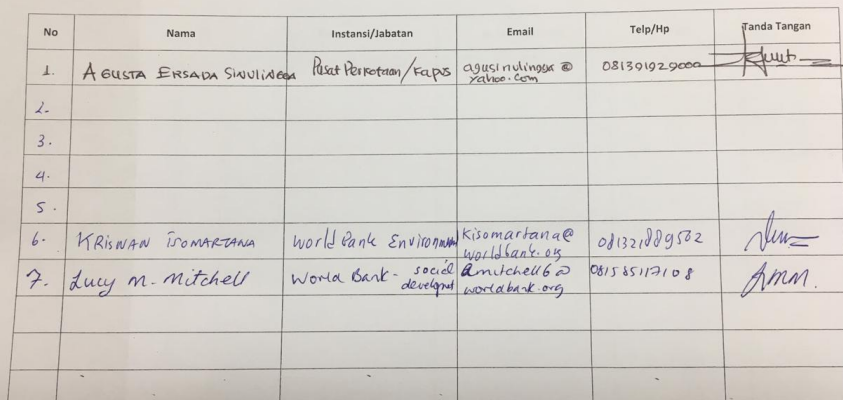 No Nama Instansi/Jabatan Email Telp/Hp Tanda Tangan
1. AGUSTA ERSADA SINULINGGA Pusat Perkotaan/Kapus agusinulingga@
yahoo.com 081391929000
2.
3.
4.
5.
6. KRISNAN ISOMARTANA World Bank Environment kisomartana@
worldbank.org 081321889562
7. Lucy M. Mitchell World Bank - social
development amitchell6@
worldbank.org 081585117108